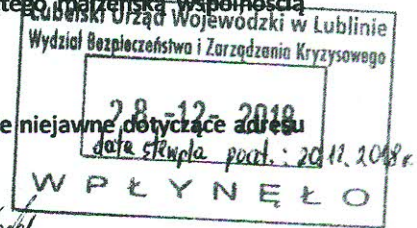 tego małżeńską wspólnością
Lubelski Urząd Wojewódzki w Lublinie
Wydział Bezpieczeństwa i Zarządzania Kryzysowego
e niejawne dotyczące adresu
28 -12- 2018
data stempla poczt.: 20.12.2018r.
WPŁYNĘŁO